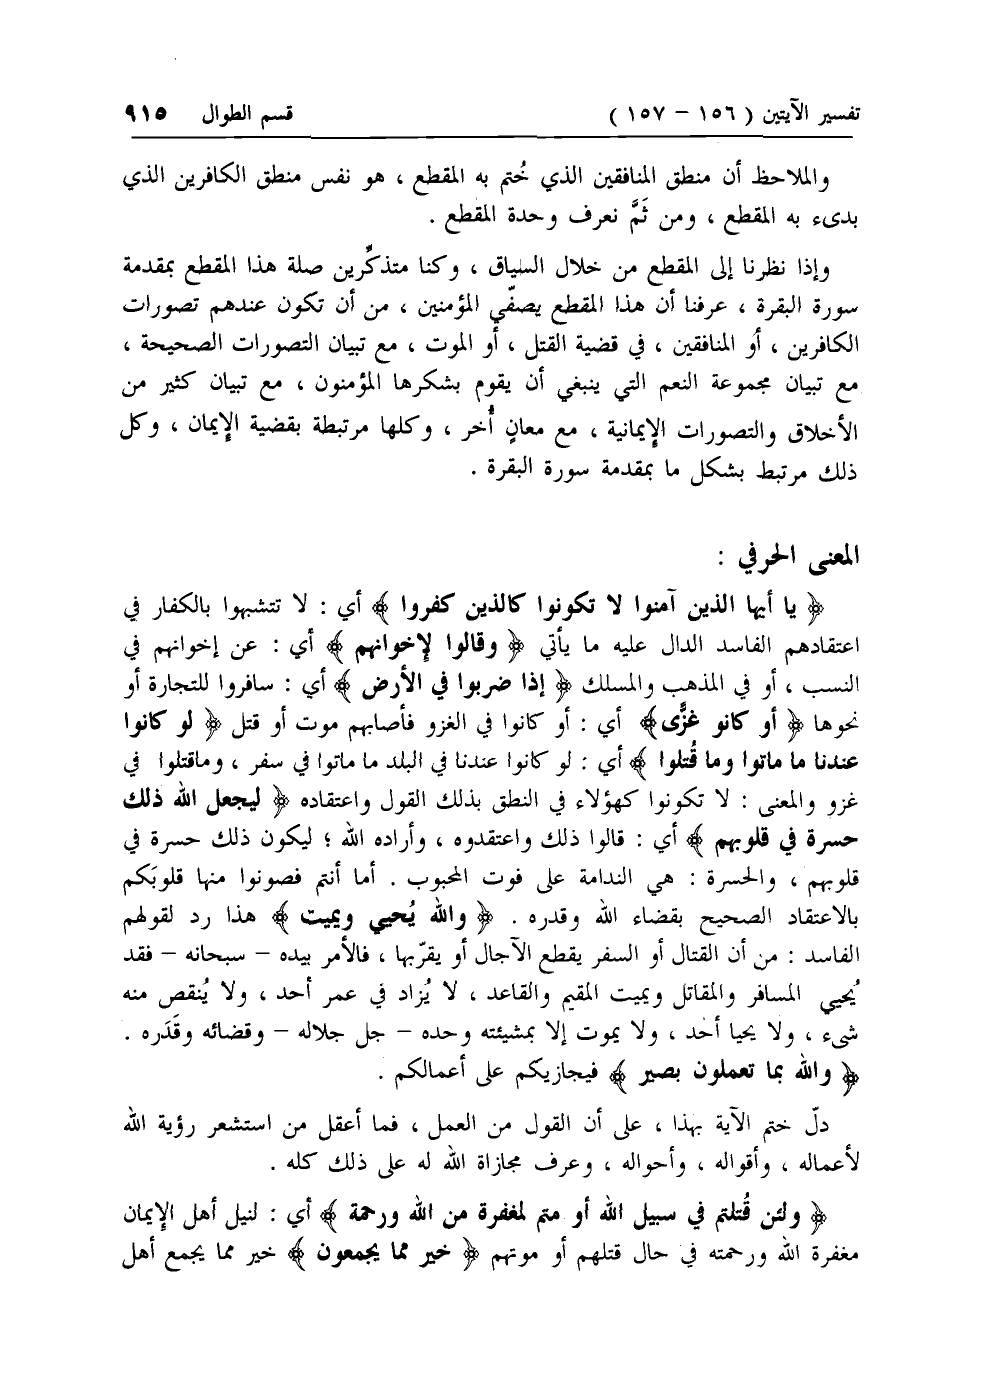 تفسير الآيتين ( ١٥٦ – ١٥٧ ) قسم الطوال ٩١٥
والملاحظ أن منطق المنافقين الذي خُتم به المقطع ، هو نفس منطق الكافرين الذي
بدىء به المقطع ، ومن ثَمَّ نعرف وحدة المقطع .
وإذا نظرنا إلى المقطع من خلال السياق ، وكنا متذكِّرين صلة هذا المقطع بمقدمة
سورة البقرة ، عرفنا أن هذا المقطع يصفّي المؤمنين ، من أن تكون عندهم تصورات
الكافرين ، أو المنافقين ، في قضية القتل ، أو الموت ، مع تبيان التصورات الصحيحة ،
مع تبيان مجموعة النعم التي ينبغي أن يقوم بشكرها المؤمنون ، مع تبيان كثير من
الأخلاق والتصورات الإيمانية ، مع معانٍ أُخر ، وكلها مرتبطة بقضية الإيمان ، وكل
ذلك مرتبط بشكل ما بمقدمة سورة البقرة .
المعنى الحرفي :
﴿ يا أيها الذين آمنوا لا تكونوا كالذين كفروا ﴾ أي : لا تتشبهوا بالكفار في
اعتقادهم الفاسد الدال عليه ما يأتي ﴿ وقالوا لإخوانهم ﴾ أي : عن إخوانهم في
النسب ، أو في المذهب والمسلك ﴿ إذا ضربوا في الأرض ﴾ أي : سافروا للتجارة أو
نحوها ﴿ أو كانو غزًّى ﴾ أي : أو كانوا في الغزو فأصابهم موت أو قتل ﴿ لو كانوا
عندنا ما ماتوا وما قُتلوا ﴾ أي : لو كانوا عندنا في البلد ما ماتوا في سفر ، وماقتلوا في
غزو والمعنى : لا تكونوا كهؤلاء في النطق بذلك القول واعتقاده ﴿ ليجعل الله ذلك
حسرة في قلوبهم ﴾ أي : قالوا ذلك واعتقدوه ، وأراده الله ؛ ليكون ذلك حسرة في
قلوبهم ، والحسرة : هي الندامة على فوت المحبوب . أما أنتم فصونوا منها قلوبَكم
بالاعتقاد الصحيح بقضاء الله وقدره . ﴿ والله يُحيي ويميت ﴾ هذا رد لقولهم
الفاسد : من أن القتال أو السفر يقطع الآجال أو يقرّبها ، فالأمر بيده – سبحانه – فقد
يُحيي المسافر والمقاتل ويميت المقيم والقاعد ، لا يُزاد في عمر أحد ، ولا يُنقص منه
شىء ، ولا يحيا أحد ، ولا يموت إلا بمشيئته وحده – جل جلاله – وقضائه وقَدَره .
﴿ والله بما تعملون بصير ﴾ فيجازيكم على أعمالكم .
دلّ ختم الآية بهذا ، على أن القول من العمل ، فما أعقل من استشعر رؤية الله
لأعماله ، وأقواله ، وأحواله ، وعرف مجازاة الله له على ذلك كله .
﴿ ولئن قُتلتم في سبيل الله أو متم لمغفرة من الله ورحمة ﴾ أي : لنيل أهل الإيمان
مغفرة الله ورحمته في حال قتلهم أو موتهم ﴿ خير مما يجمعون ﴾ خير مما يجمع أهل